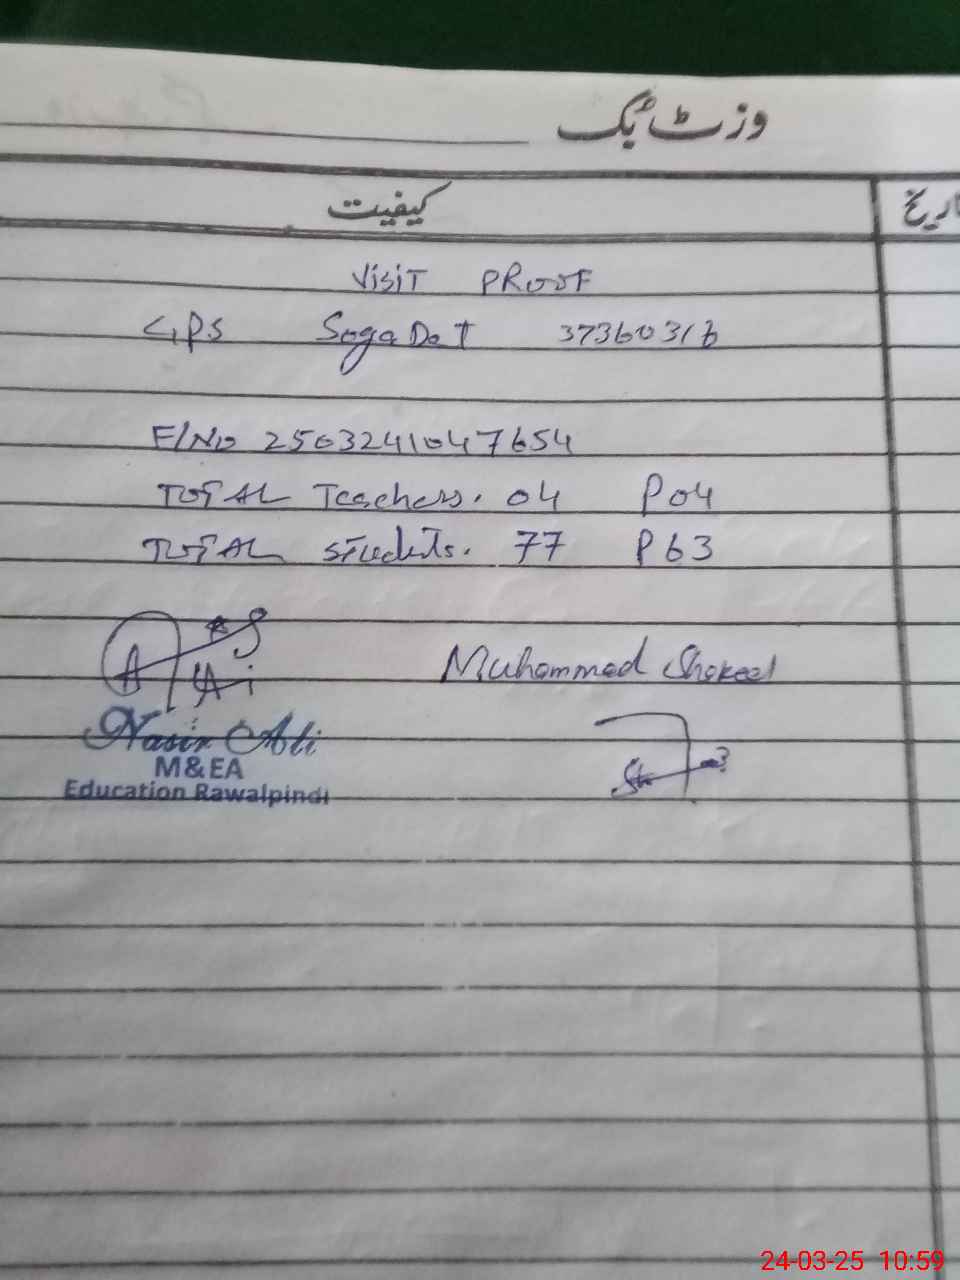 وزٹ بُک
کیفیت
تاریخ
VISIT PROOF
GPS Soga Dat 37360316
E/No 2503241047654
TOTAL Teachers. 04 P 04
TOTAL Students. 77 P 63
Muhammad Shakeel
Nasir Ali
M&EA
Education Rawalpindi
24-03-25 10:59